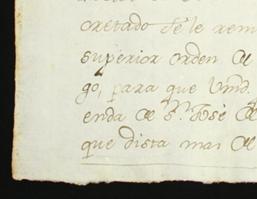 cretado se le rem
superior orden de
go, para que Vmd.
enda de Sn. José de
que dista mas de